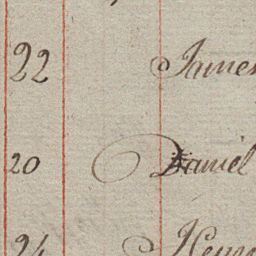 22 James
20 Daniel
24 Henry